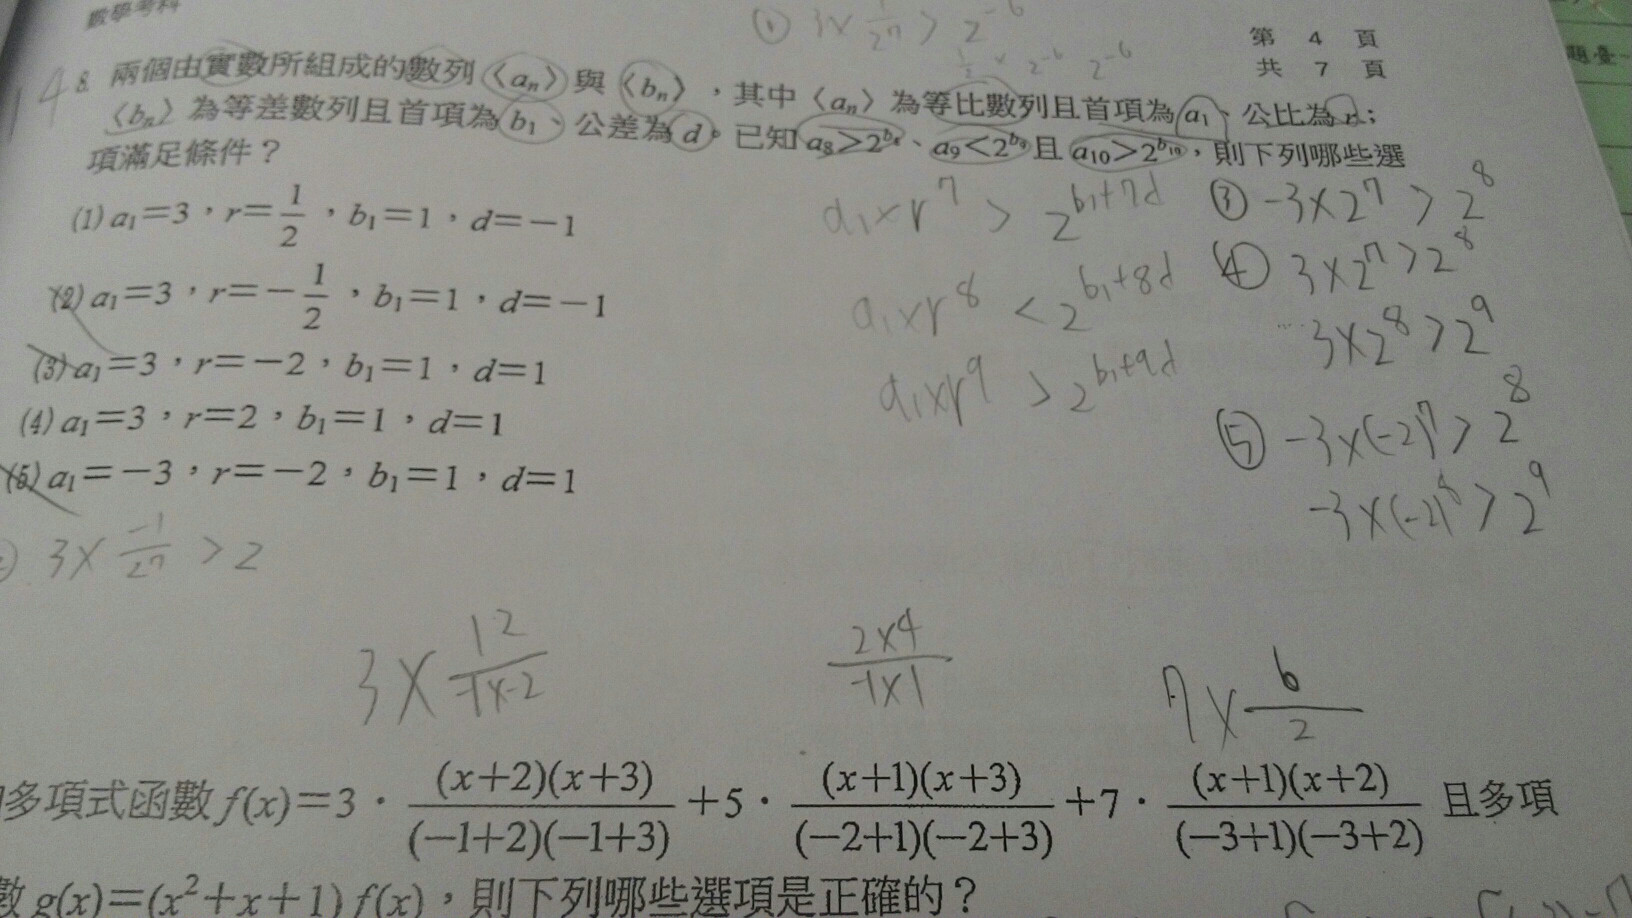 數學考科
第 4 頁
共 7 頁
① 3×1/2ⁿ > 2⁻⁶
1/2 × 2⁻⁶ 2⁻⁶
14
8. 兩個由實數所組成的數列〈aₙ〉與〈bₙ〉，其中〈aₙ〉為等比數列且首項為a₁、公比為r；
〈bₙ〉為等差數列且首項為b₁、公差為d。已知a₈＞2^b₈、a₉＜2^b₉且a₁₀＞2^b₁₀，則下列哪些選
項滿足條件？
(1) a₁＝3，r＝1/2，b₁＝1，d＝－1
(2) a₁＝3，r＝－1/2，b₁＝1，d＝－1
(3) a₁＝3，r＝－2，b₁＝1，d＝1
(4) a₁＝3，r＝2，b₁＝1，d＝1
(5) a₁＝－3，r＝－2，b₁＝1，d＝1
a₁×r⁷ > 2^(b₁+7d)
a₁×r⁸ < 2^(b₁+8d)
a₁×r⁹ > 2^(b₁+9d)
③ -3×2⁷ > 2⁸
④ 3×2⁷ > 2⁸
3×2⁸ > 2⁹
⑤ -3×(-2)⁷ > 2⁸
-3×(-2)⁸ > 2⁹
3×-1/2ⁿ > 2
3×12/-1×-2
2×4/-1×1
7×6/2
多項式函數 f(x)＝3．(x＋2)(x＋3)/(－1＋2)(－1＋3)＋5．(x＋1)(x＋3)/(－2＋1)(－2＋3)＋7．(x＋1)(x＋2)/(－3＋1)(－3＋2) 且多項
數 g(x)＝(x²＋x＋1) f(x)，則下列哪些選項是正確的？